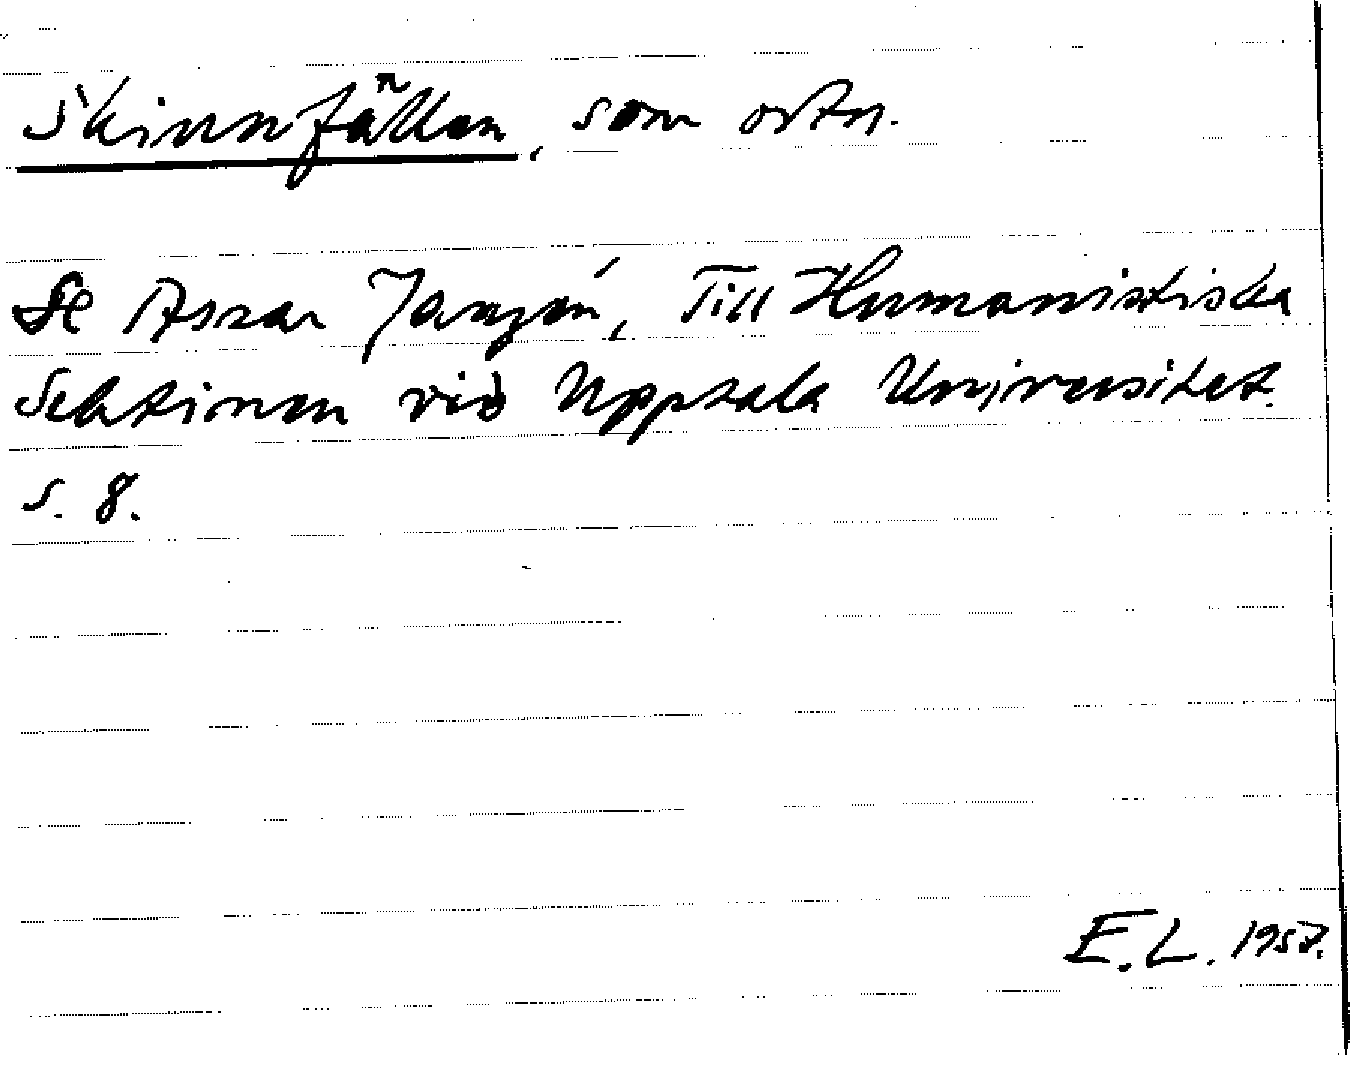 Skinnfällen, som ortn.
Se Assar Janzén, Till Humanistiska
Sektionen vid Uppsala Universitet.
s. 8.
E.L. 1957.